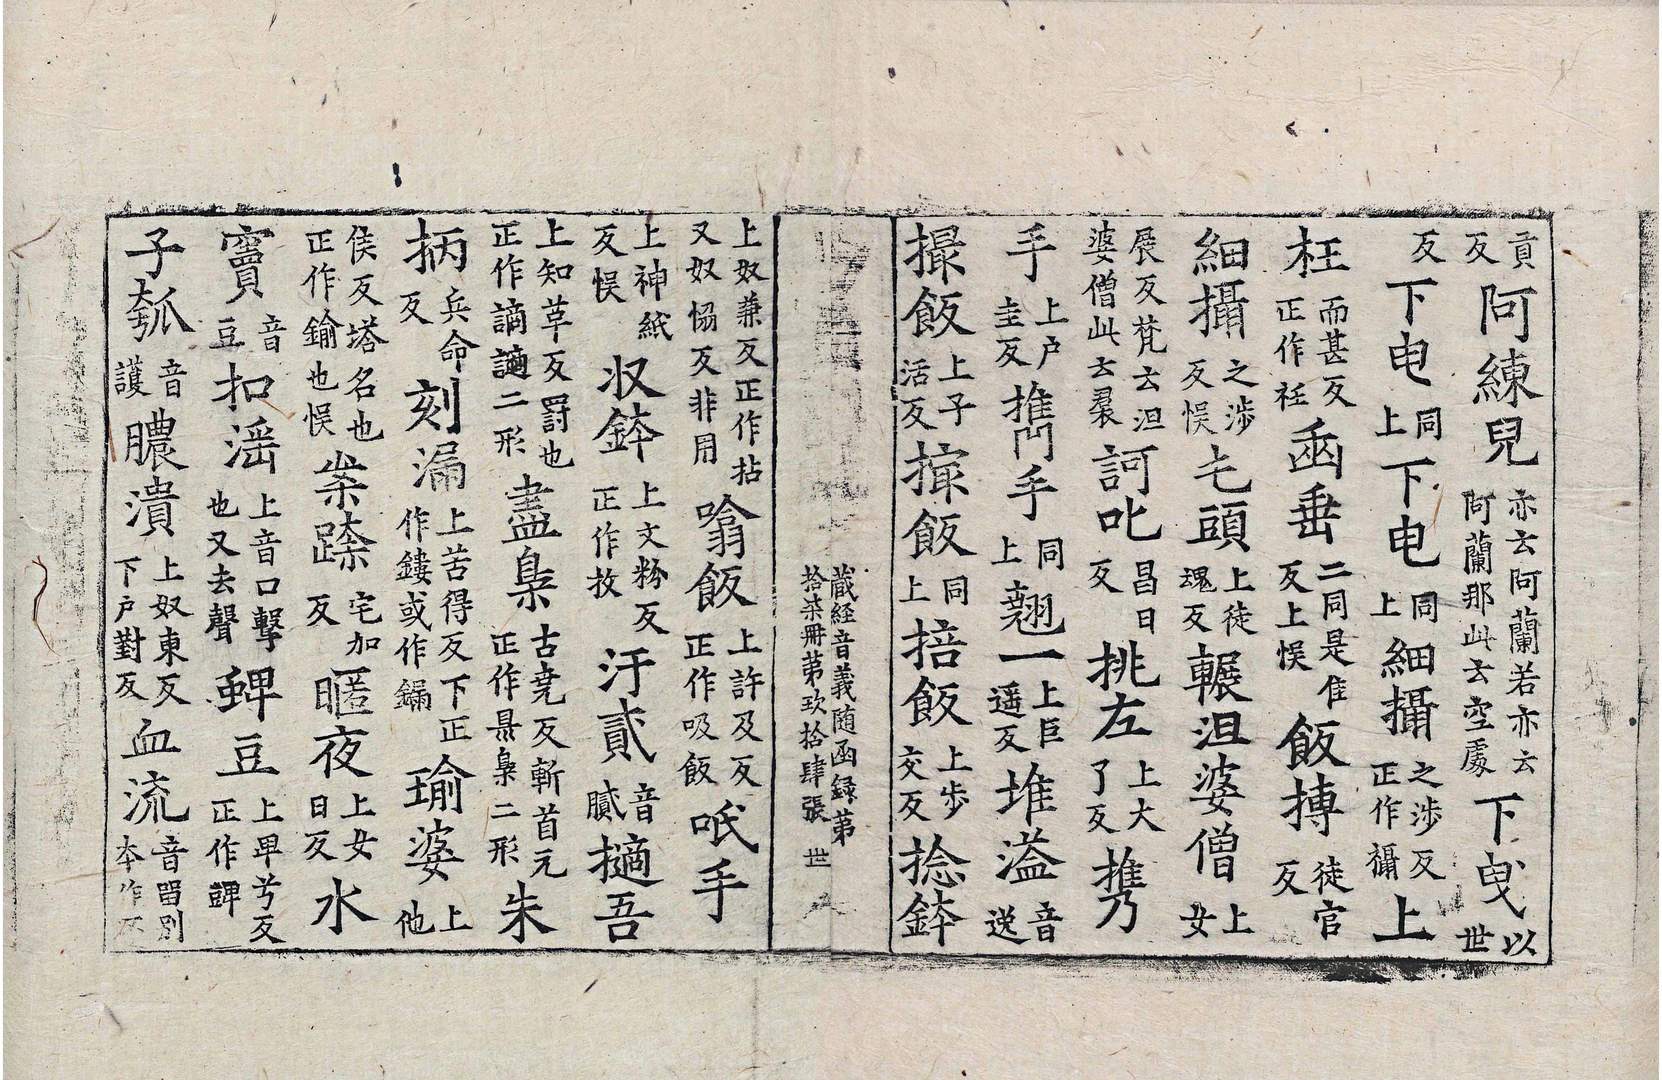 貢反阿練兒亦云阿蘭若亦云阿蘭那此云空處下曳以世
反下电同上下电同上細攝之涉反正作襵上
枉而甚反正作衽凾垂二同是隹反上悮飯摶徒官反
細攝之涉反悮乇頭上徒魂反輾沮婆僧上女
展反梵云沮婆僧此云裠訶叱昌日反挑左上大了反携
手上户圭反㩗手同上翹一上巨遥反堆溢音逸
撮飯上子活反撮飯同上掊飯上步交反捻鉢
藏経音義随函録第
拾柒冊第玖拾肆張 世
上奴兼反正作拈又奴恊反非用噏飯上許及反正作吸飯呧手
上神紙反悮収鉢上文粉反正作抆汙貳音膩擿吾
上知革反罰也正作謫讁二形盡梟古尭反斬首元正作㬎梟二形朱
柄兵命反刻漏上苦得反下正作鏤或作鏥瑜婆上他
侯反塔名也正作鍮也悮柴跨宅加反暱夜上女日反水
竇音豆扣滛上音口擊也又去聲蜱豆上卑兮反正作豍
子瓠音護膿潰上奴東反下户對反血流音留別本作